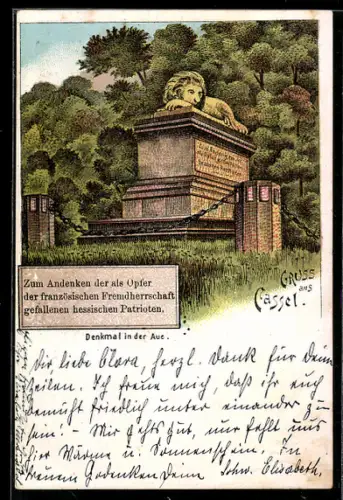 Gruss
aus
Cassel.
Zum Andenken der als Opfer
der französischen Fremdherrschaft
gefallenen hessischen Patrioten.
Denkmal in der Aue.
Dir liebe Clara, herzl. Dank für Deine
Zeilen. Ich freue mich, daß ihr euch
bemüht friedlich unter einander zu
sein! – Mir gehts gut, nur fehlt uns
hier Wärme u. Sonnenschein. In
treuem Gedenken Deine Schw. Elisabeth.